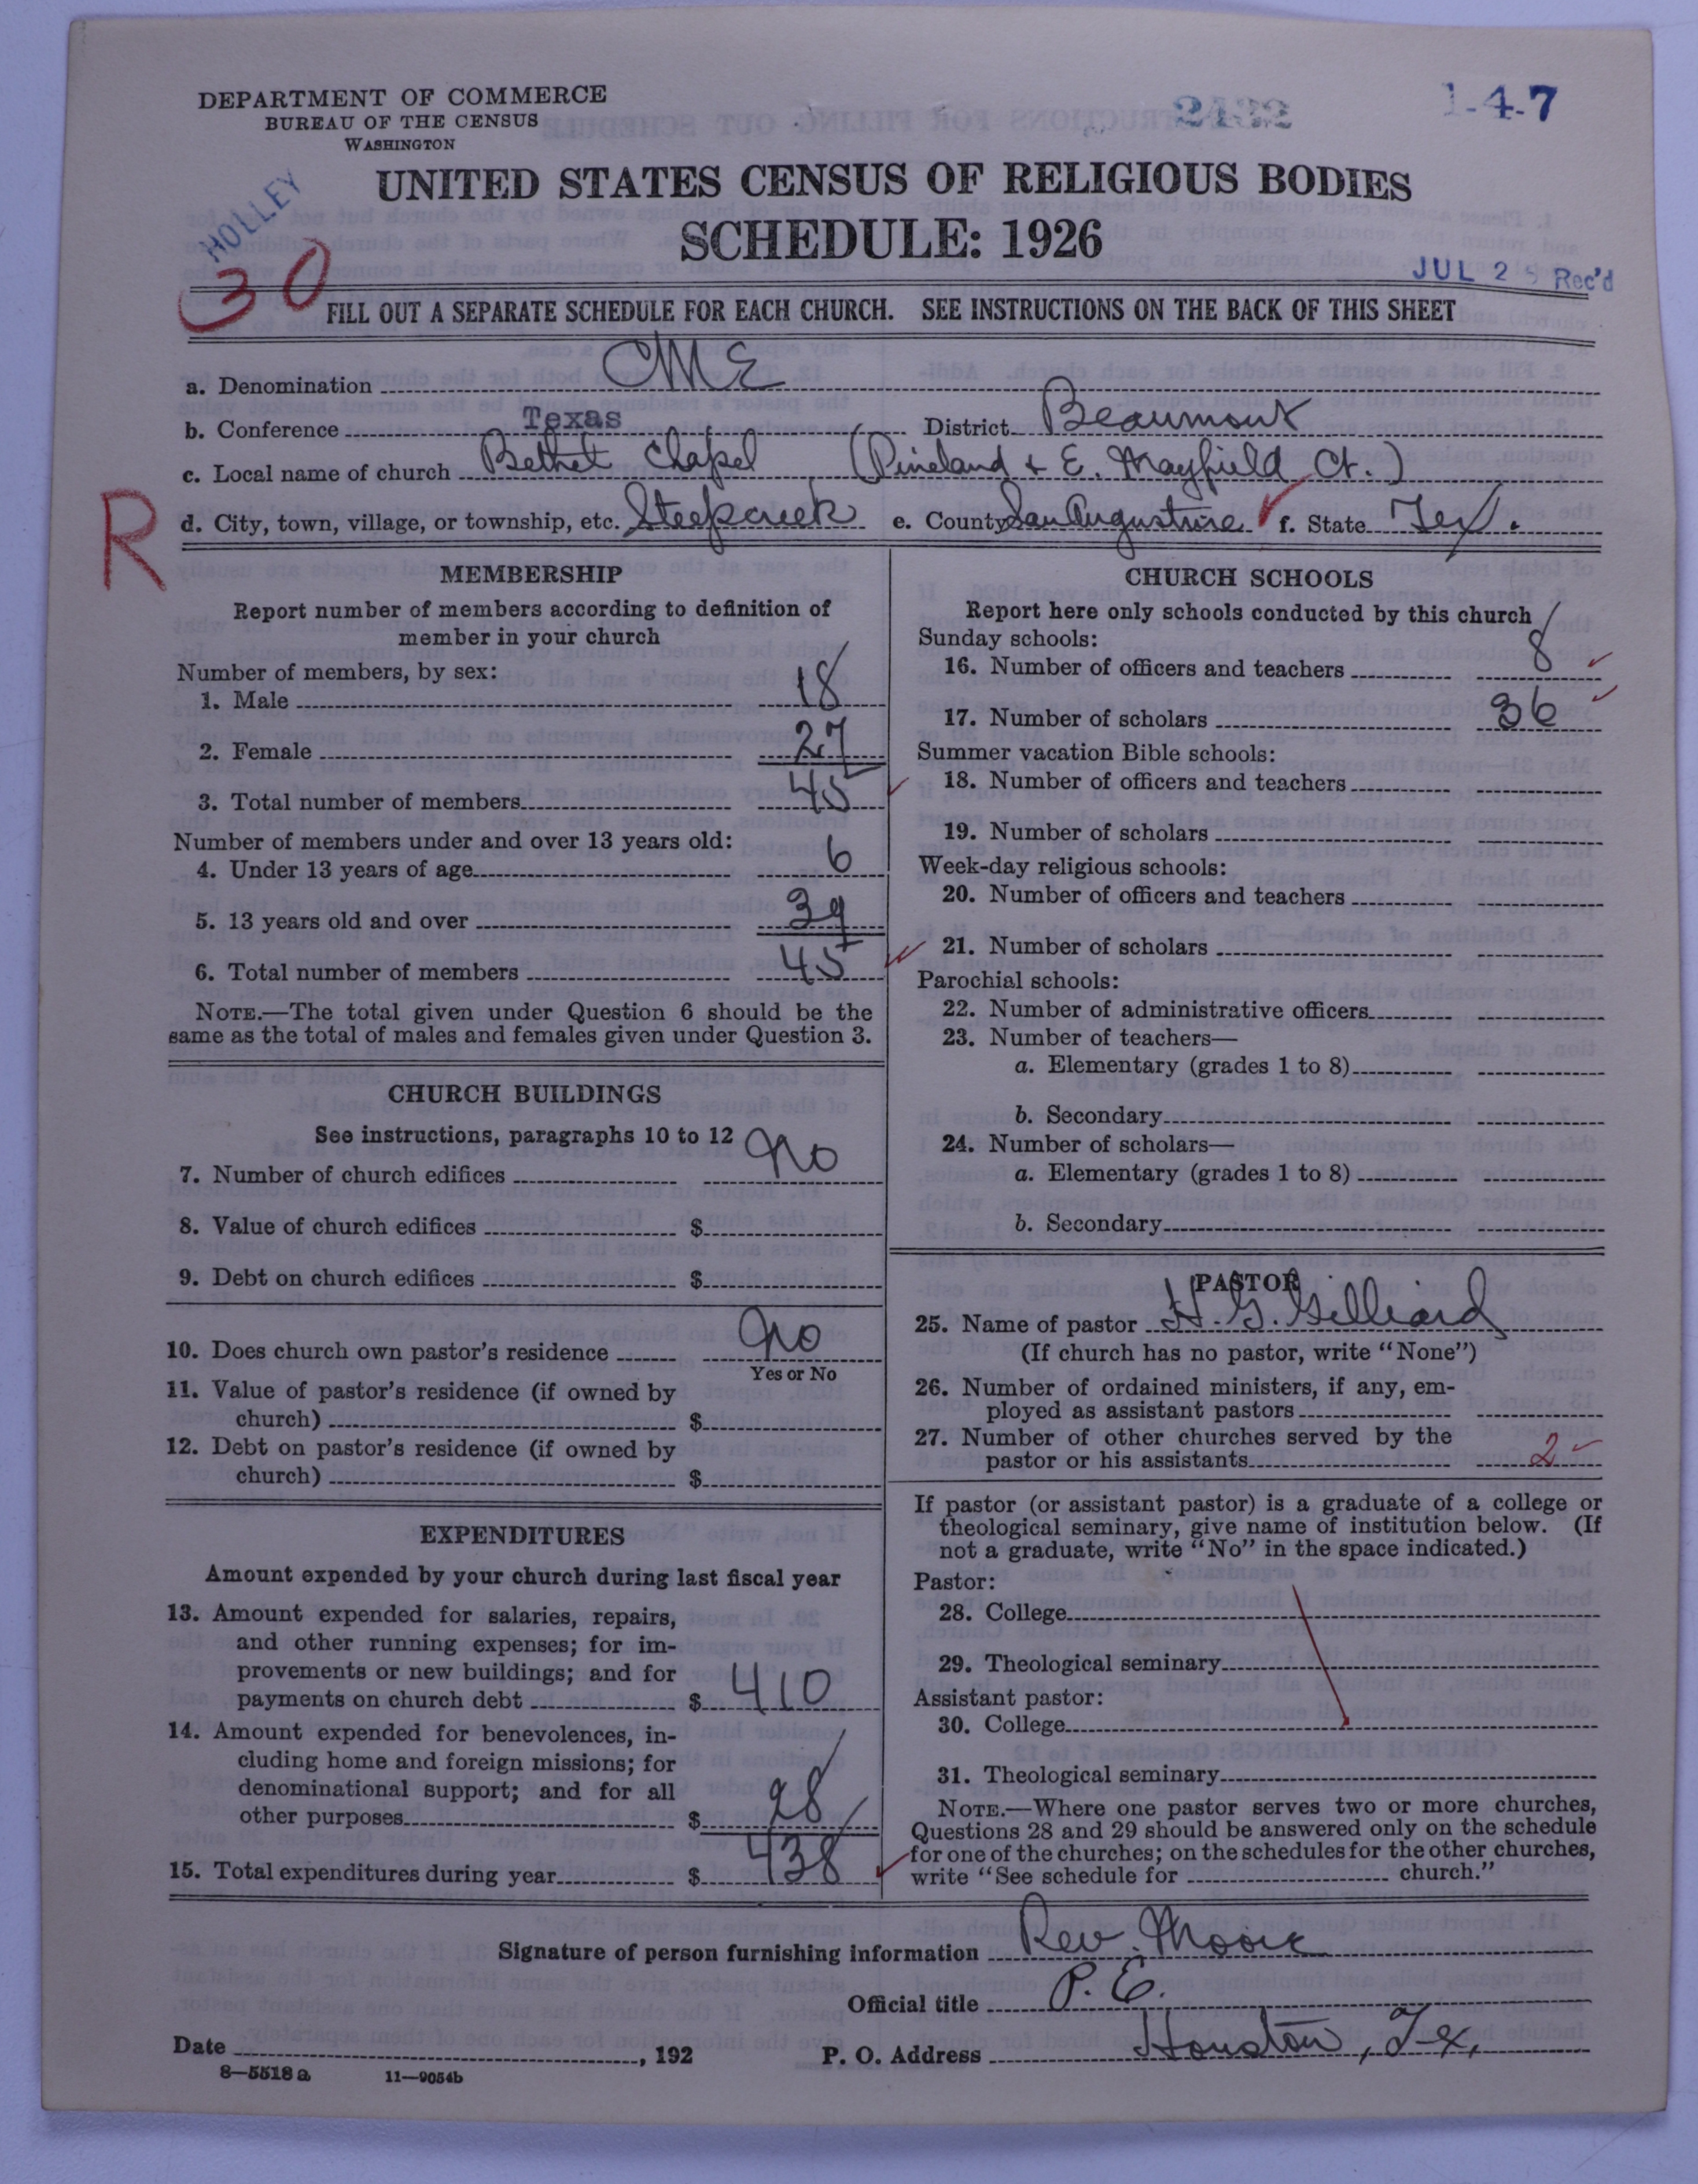 DEPARTMENT OF COMMERCE
BUREAU OF THE CENSUS
WASHINGTON
1-4-7
UNITED STATES CENSUS OF RELIGIOUS BODIES
SCHEDULE: 1926
HOLLEY
30
JUL 25 Rec'd
FILL OUT A SEPARATE SCHEDULE FOR EACH CHURCH. SEE INSTRUCTIONS ON THE BACK OF THIS SHEET
a. Denomination CME
b. Conference Texas District Beaumont
c. Local name of church Bethel Chapel (Pineland & E. Mayfield Ct.)
R
d. City, town, village, or township, etc. Steepcreek e. County San Augustine f. State Tex.
MEMBERSHIP
Report number of members according to definition of
member in your church
Number of members, by sex:
1. Male 18
2. Female 27
3. Total number of members 45
Number of members under and over 13 years old:
4. Under 13 years of age 6
5. 13 years old and over 39
6. Total number of members 45
NOTE.—The total given under Question 6 should be the
same as the total of males and females given under Question 3.
CHURCH BUILDINGS
See instructions, paragraphs 10 to 12
7. Number of church edifices No
8. Value of church edifices $
9. Debt on church edifices $
10. Does church own pastor's residence No
Yes or No
11. Value of pastor's residence (if owned by
church) $
12. Debt on pastor's residence (if owned by
church) $
EXPENDITURES
Amount expended by your church during last fiscal year
13. Amount expended for salaries, repairs,
and other running expenses; for im-
provements or new buildings; and for
payments on church debt $ 410
14. Amount expended for benevolences, in-
cluding home and foreign missions; for
denominational support; and for all
other purposes $ 28
15. Total expenditures during year $ 438
CHURCH SCHOOLS
Report here only schools conducted by this church
Sunday schools:
16. Number of officers and teachers 8
17. Number of scholars 36
Summer vacation Bible schools:
18. Number of officers and teachers
19. Number of scholars
Week-day religious schools:
20. Number of officers and teachers
21. Number of scholars
Parochial schools:
22. Number of administrative officers
23. Number of teachers—
a. Elementary (grades 1 to 8)
b. Secondary
24. Number of scholars—
a. Elementary (grades 1 to 8)
b. Secondary
PASTOR
25. Name of pastor H. G. Gilliard
(If church has no pastor, write "None")
26. Number of ordained ministers, if any, em-
ployed as assistant pastors
27. Number of other churches served by the
pastor or his assistants 2
If pastor (or assistant pastor) is a graduate of a college or
theological seminary, give name of institution below. (If
not a graduate, write "No" in the space indicated.)
Pastor:
28. College
29. Theological seminary
Assistant pastor:
30. College
31. Theological seminary
NOTE.—Where one pastor serves two or more churches,
Questions 28 and 29 should be answered only on the schedule
for one of the churches; on the schedules for the other churches,
write "See schedule for church."
Signature of person furnishing information Rev. Moore
Official title P. E.
Date , 192 P. O. Address Houston, Tex.
8—5518 a 11—9054b